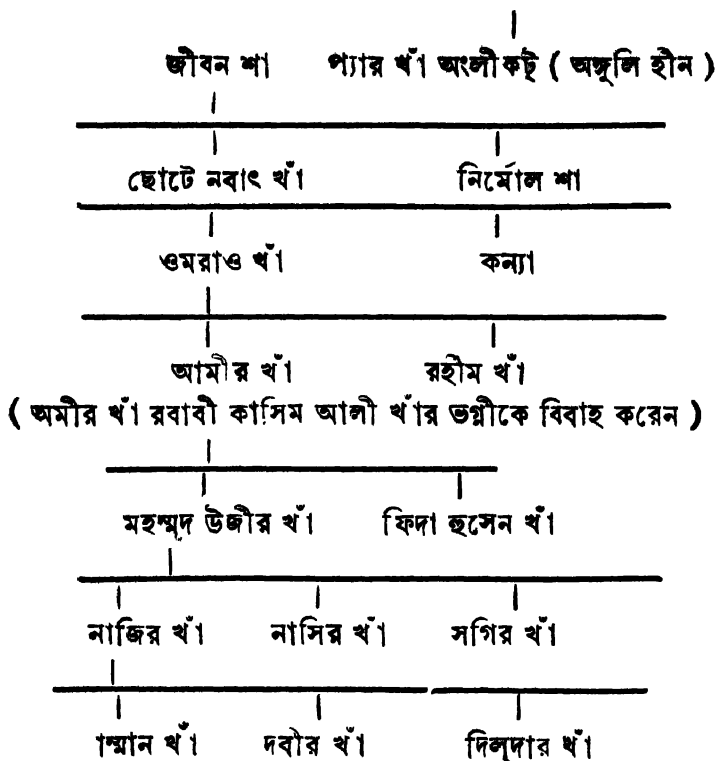 জীবন শা প্যার খাঁ অংলীকট্ ( অঙ্গুলি হীন )
ছোটে নবাৎ খাঁ নির্মোল শা
ওমরাও খাঁ কন্যা
আমীর খাঁ রহীম খাঁ
( অমীর খাঁ রবাবী কাসিম আলী খাঁর ভগ্নীকে বিবাহ করেন )
মহম্মদ উজীর খাঁ ফিদা হুসেন খাঁ
নাজির খাঁ নাসির খাঁ সগির খাঁ
দবীর খাঁ দিলদার খাঁ